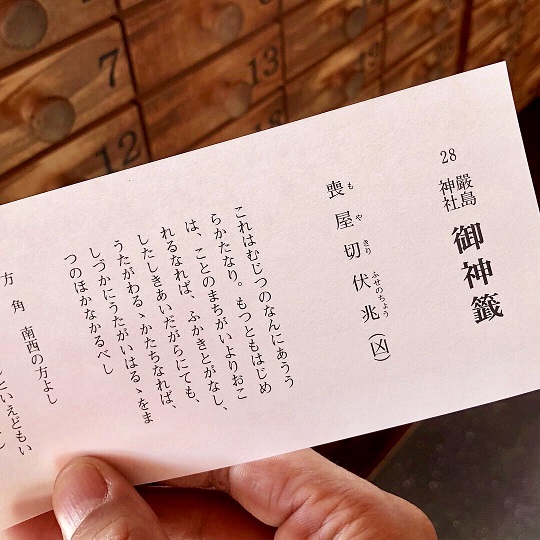 28
嚴島神社
御神籤
喪屋切伏兆(凶)
もやきりふせのちょう
これはむじつのなんにあうう
らかたなり。もつともはじめ
は、ことのまちがいよりおこ
れるなれば、ふかきとがなし、
したしきあいだがらにても、
うたがわるゝかたちなれば、
しづかにうたがいはるゝをま
つのほかなかるべし
方角 南西の方よし
といえどもい
7
13
12
19